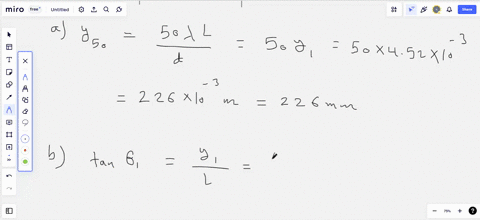 miro free Untitled Share
a) y₅₀ = 50λL/d = 50 y₁ = 50 × 4.52 × 10⁻³
= 226 × 10⁻³ m = 226 mm
b) tan θ₁ = y₁/L =
79%